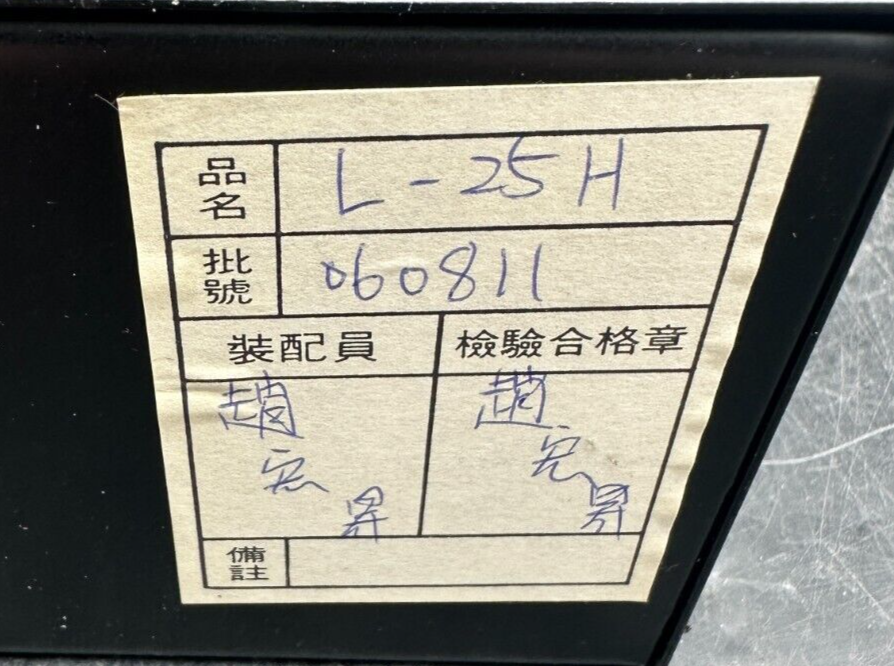 品名 L-25H
批號 060811
裝配員 檢驗合格章
趙宏昇 趙宏昇
備註